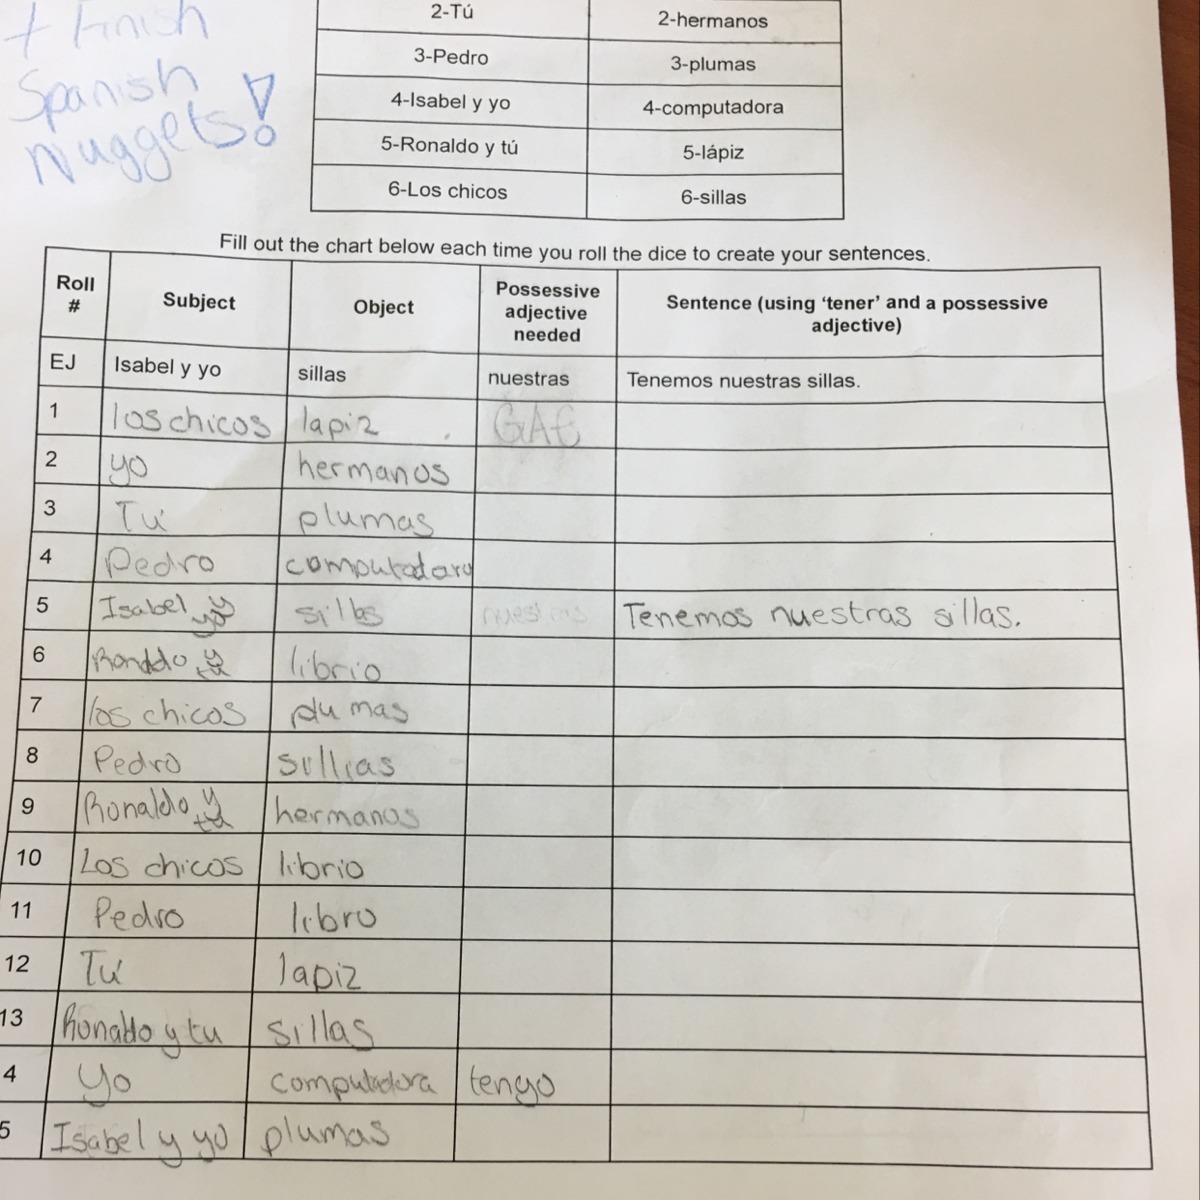 + Finish
Spanish
Nuggets!
2-Tú 2-hermanos
3-Pedro 3-plumas
4-Isabel y yo 4-computadora
5-Ronaldo y tú 5-lápiz
6-Los chicos 6-sillas
Fill out the chart below each time you roll the dice to create your sentences.
Roll # Subject Object Possessive adjective needed Sentence (using ‘tener’ and a possessive adjective)
EJ Isabel y yo sillas nuestras Tenemos nuestras sillas.
1 los chicos lapiz
2 yo hermanos
3 Tú plumas
4 Pedro computadora
5 Isabel y yo sillas nuestras Tenemos nuestras sillas.
6 Ronaldo y tu librio
7 los chicos plumas
8 Pedro sillias
9 Ronaldo y tu hermanos
10 Los chicos librio
11 Pedro libro
12 Tú lapiz
13 Ronaldo y tu sillas
4 Yo computadora tengo
5 Isabel y yo plumas